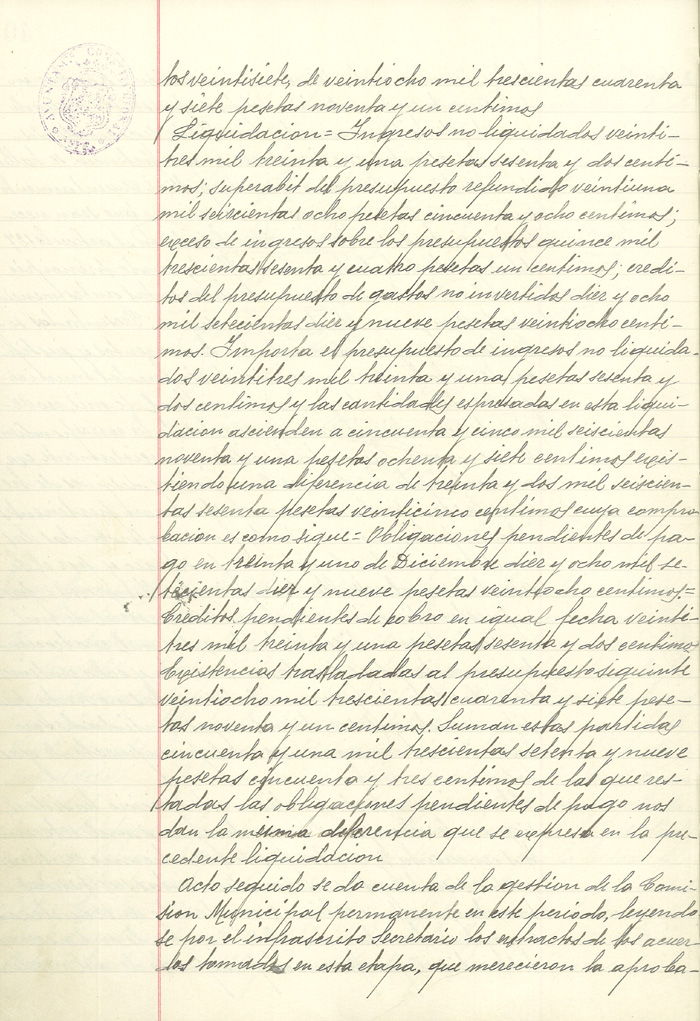 AYUNTAMIENTO CONSTITUCIONAL
tos veintisiete, de veintiocho mil trescientas cuarenta
y siete pesetas noventa y un centimos
Liquidacion = Ingresos no liquidados veinti-
tres mil treinta y una pesetas sesenta y dos centi-
mos; superabit del presupuesto refundido veintiuna
mil seiscientas ocho pesetas cincuenta y ocho centimos;
exceso de ingresos sobre los presupuestos quince mil
trescientas sesenta y cuatro pesetas un centimos; credi-
tos del presupuesto de gastos no invertidos diez y ocho
mil setecientas diez y nueve pesetas veintiocho centi-
mos. Importa el presupuesto de ingresos no liquida-
dos veintitres mil treinta y una pesetas sesenta y
dos centimos y las cantidades expresadas en esta liqui-
dacion ascienden a cincuenta y cinco mil seiscientas
noventa y una pesetas ochenta y siete centimos exis-
tiendo una diferencia de treinta y dos mil seiscien-
tas sesenta pesetas veinticinco centimos cuya compro-
bacion es como sigue = Obligaciones pendientes de pa-
go en treinta y uno de Diciembre diez y ocho mil se-
tecientas diez y nueve pesetas veintiocho centimos =
Creditos pendientes de cobro en igual fecha veinti-
tres mil treinta y una pesetas sesenta y dos centimos
Existencias trasladadas al presupuesto siguiente
veintiocho mil trescientas cuarenta y siete pese-
tas noventa y un centimos. Suman estas partidas
cincuenta y una mil trescientas setenta y nueve
pesetas cincuenta y tres centimos de las que res-
tadas las obligaciones pendientes de pago nos
dan la misma diferencia que se expresa en la pre-
cedente liquidacion
Acto seguido se da cuenta de la gestion de la Comi-
sion Municipal permanente en este periodo, leyendo
se por el infrascrito Secretario los extractos de los acuer-
dos tomados en esta etapa, que merecieron la aproba-